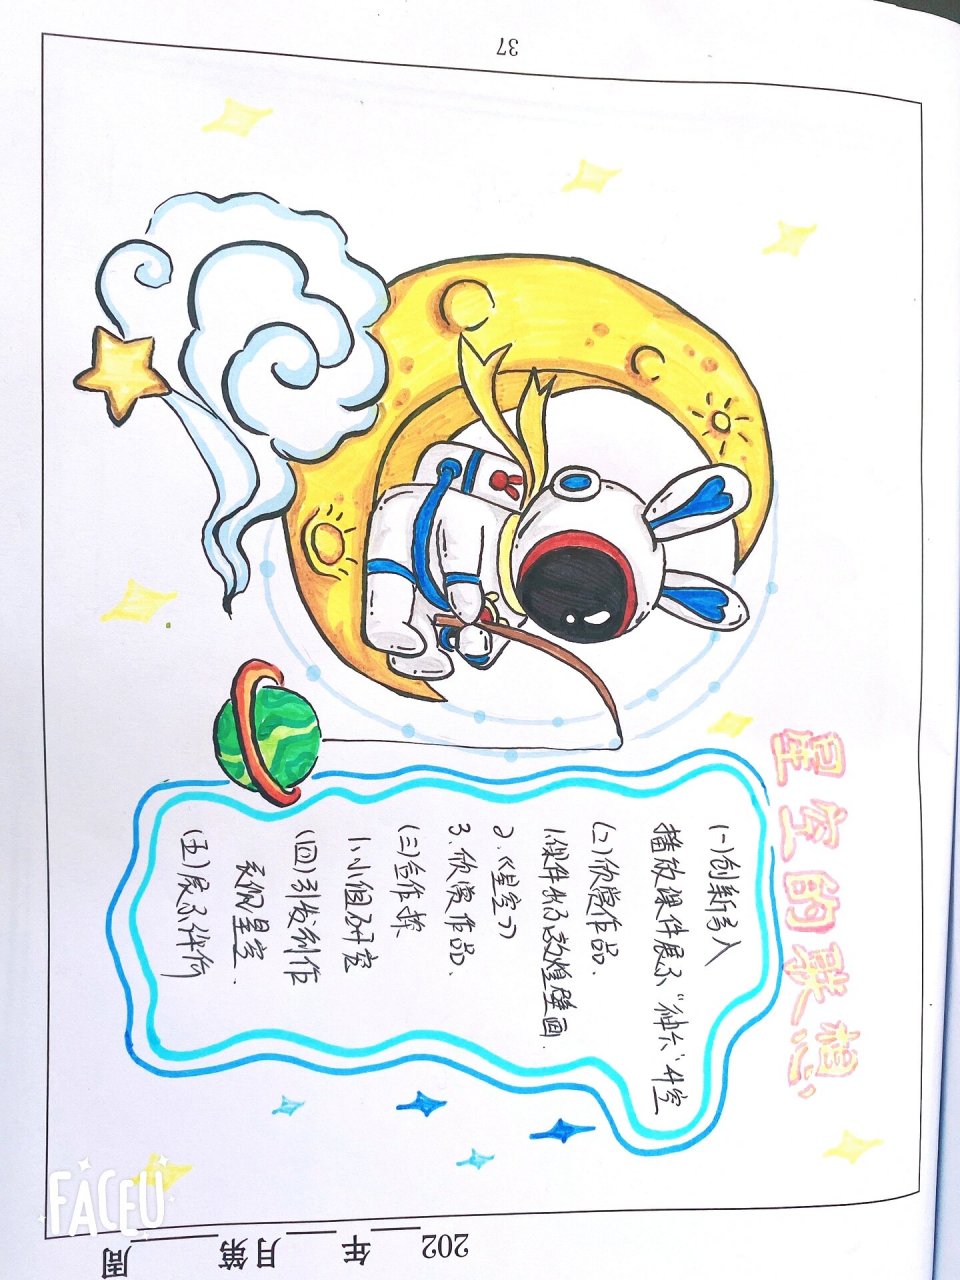 37
星空的联想
(一)创新引入
播放课件展示“神六”升空
(二)欣赏作品.
1.课件出示敦煌壁画.
2.《星空》
3.欣赏作品.
(三)合作探
1.小组研究
(四)引发创作
我们星空.
(五)展示评价
202 年 月第 周
FACEU